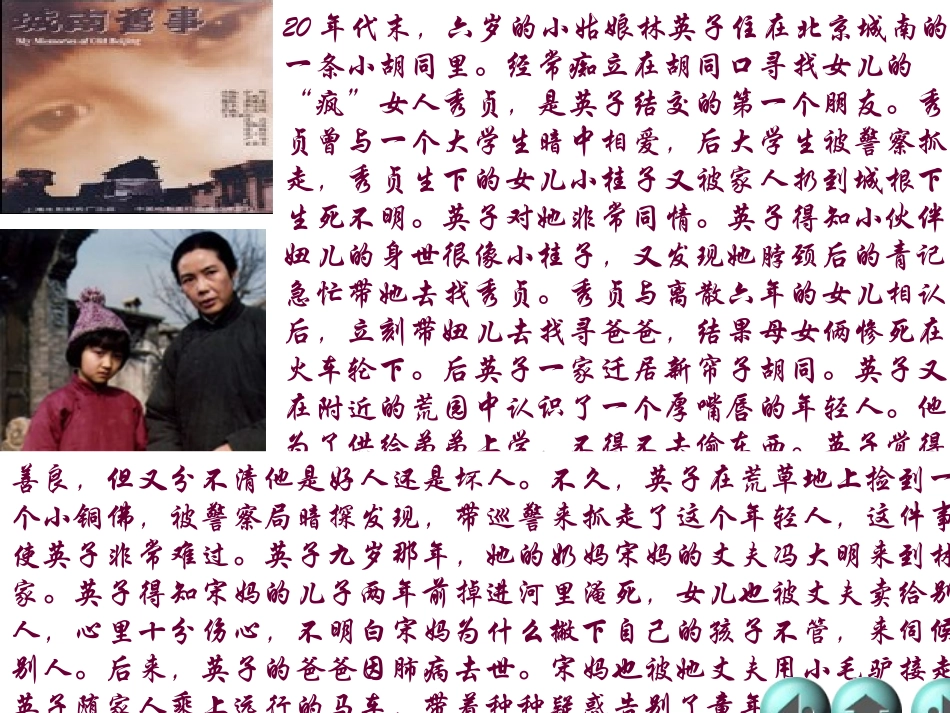 城南旧事
My Memories of Old Beijing
20 年代末，六岁的小姑娘林英子住在北京城南的
一条小胡同里。经常痴立在胡同口寻找女儿的
“疯”女人秀贞，是英子结交的第一个朋友。秀
贞曾与一个大学生暗中相爱，后大学生被警察抓
走，秀贞生下的女儿小桂子又被家人扔到城根下
生死不明。英子对她非常同情。英子得知小伙伴
妞儿的身世很像小桂子，又发现她脖颈后的青记
急忙带她去找秀贞。秀贞与离散六年的女儿相认
后，立刻带妞儿去找寻爸爸，结果母女俩惨死在
火车轮下。后英子一家迁居新帘子胡同。英子又
在附近的荒园中认识了一个厚嘴唇的年轻人。他
为了供给弟弟上学，不得不去偷东西。英子觉得
善良，但又分不清他是好人还是坏人。不久，英子在荒草地上捡到一
个小铜佛，被警察局暗探发现，带巡警来抓走了这个年轻人，这件事
使英子非常难过。英子九岁那年，她的奶妈宋妈的丈夫冯大明来到林
家。英子得知宋妈的儿子两年前掉进河里淹死，女儿也被丈夫卖给别
人，心里十分伤心，不明白宋妈为什么撇下自己的孩子不管，来伺候
别人。后来，英子的爸爸因肺病去世。宋妈也被她丈夫用小毛驴接走
英子随家人乘上远行的马车，带着种种疑惑告别了童年